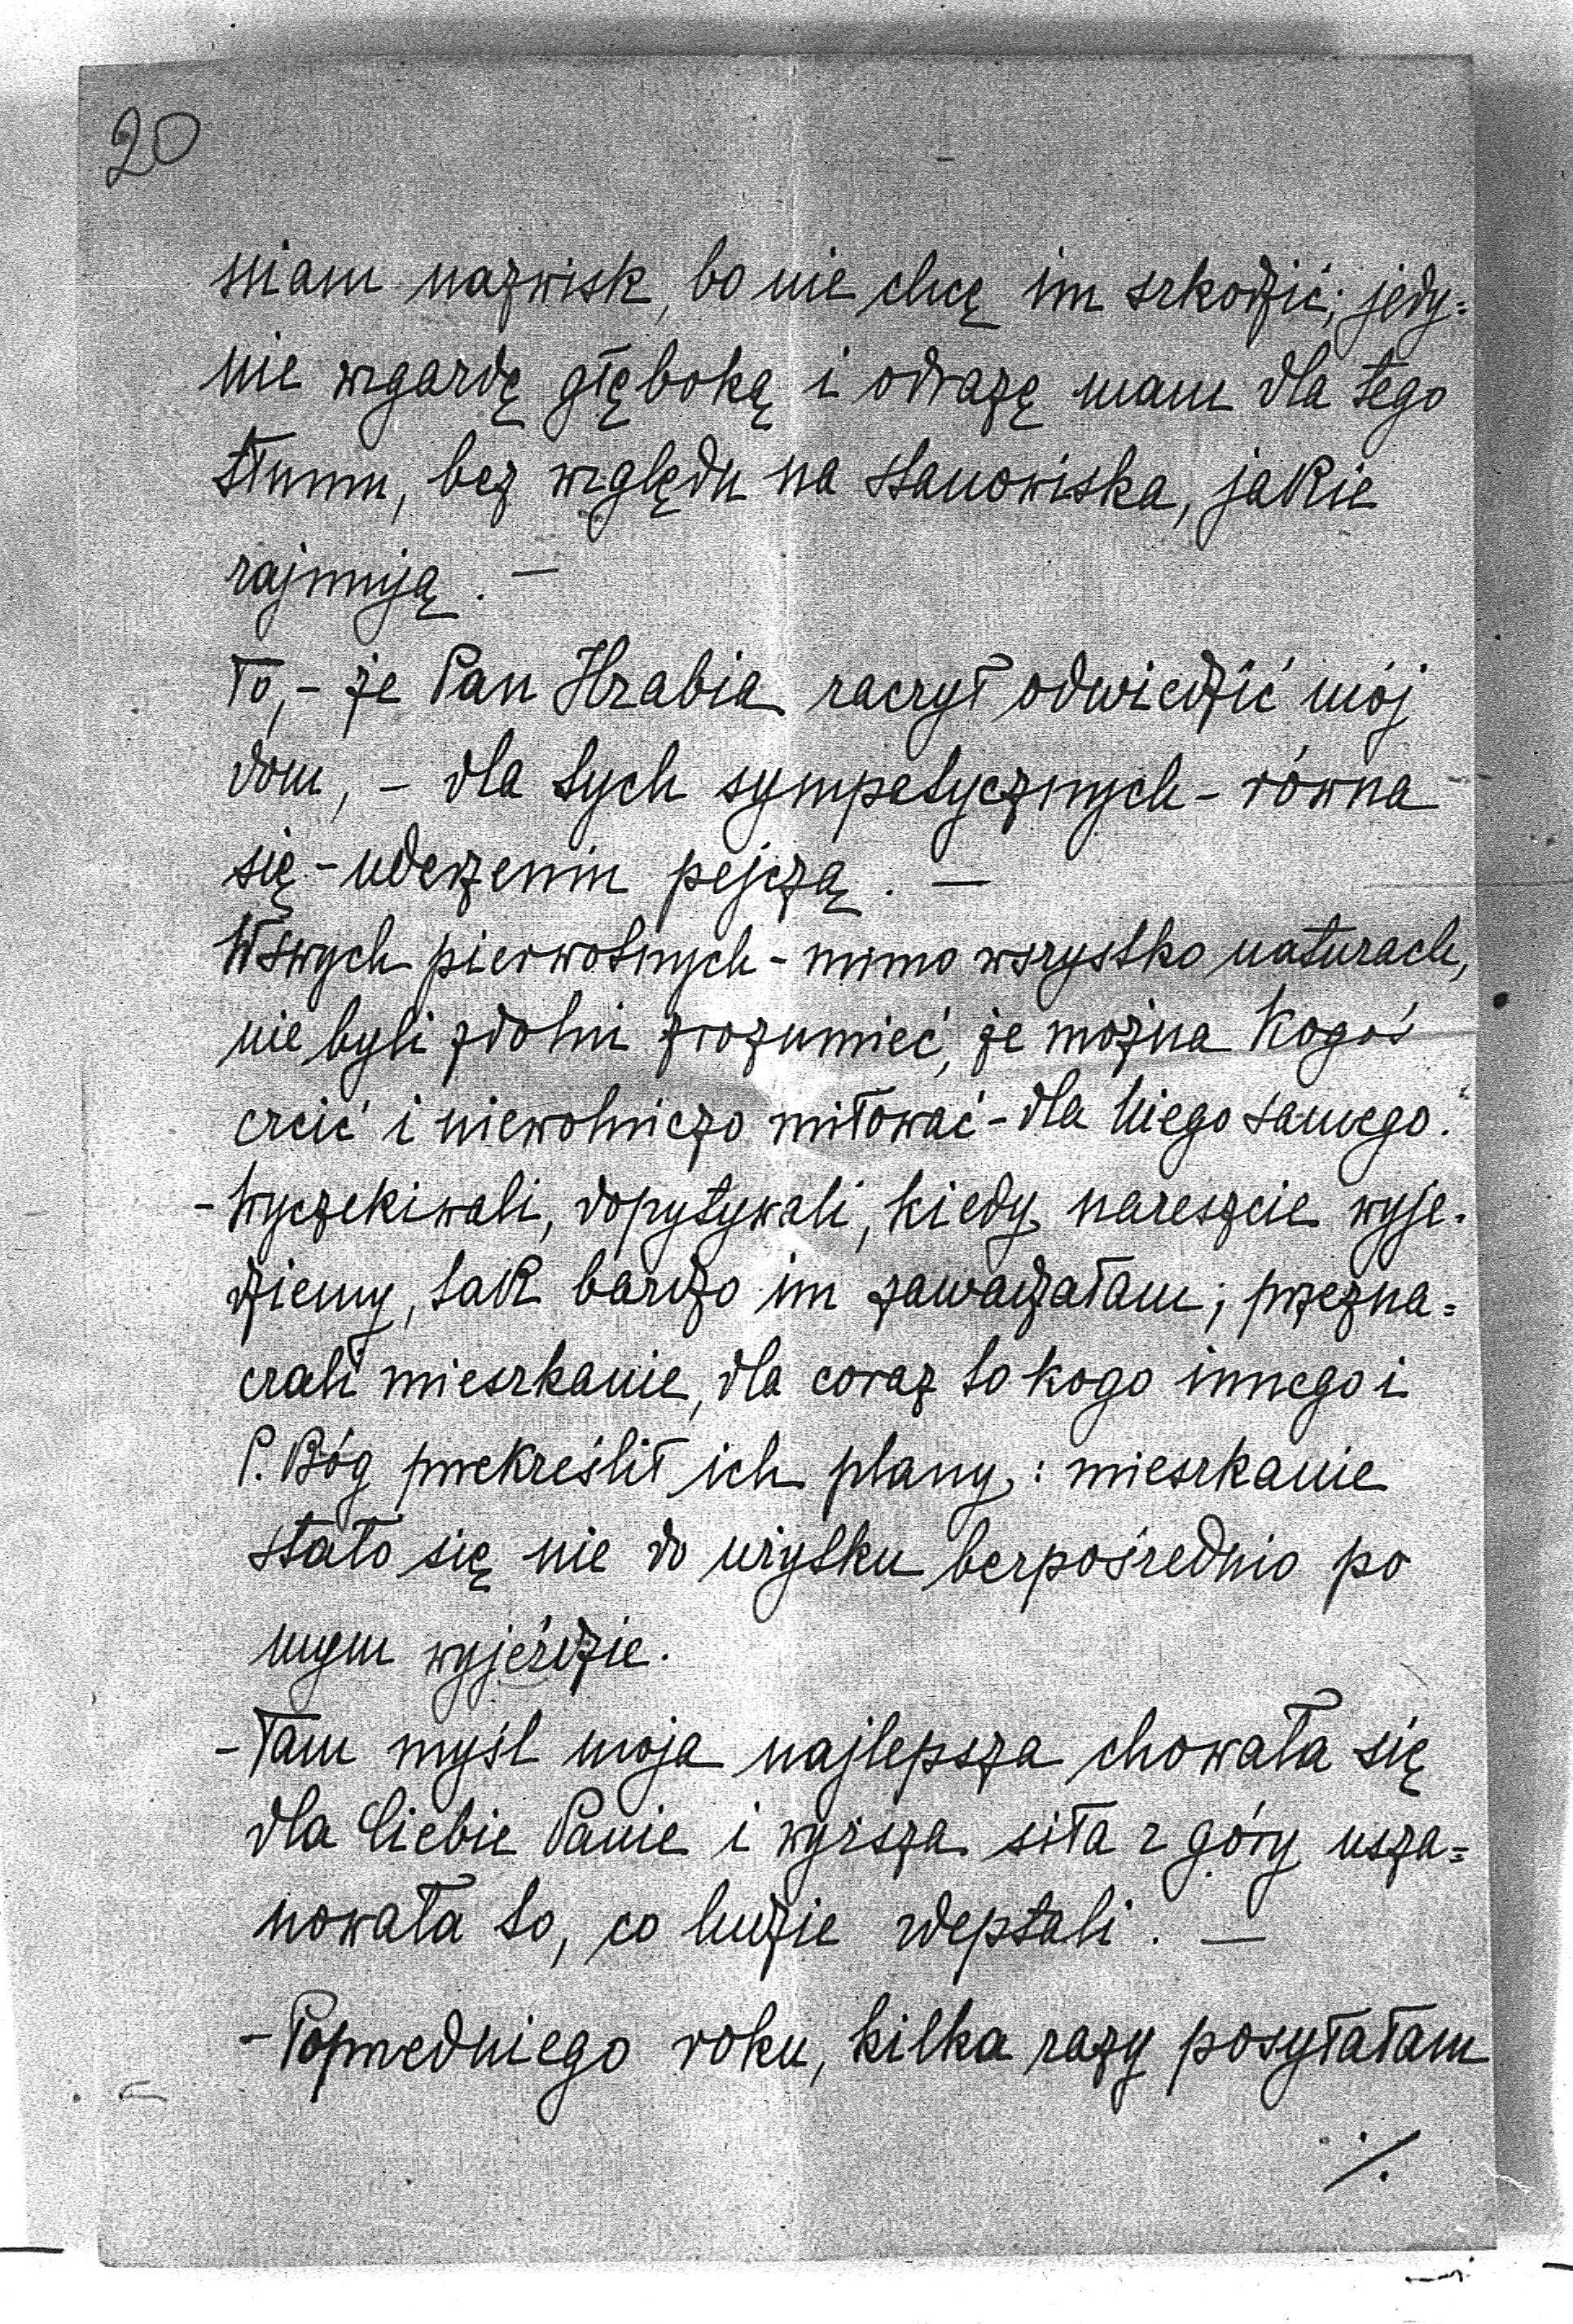 20
niam nazwisk, bo nie chcę im szkodzić; jedy=
nie wzgardę głęboką i odrazę mam dla tego
tłumu, bez względu na stanowiska, jakie
zajmują. —
To, – że Pan Hrabia raczył odwiedzić mój
dom, – dla tych sympatycznych – równa
się – uderzeniu pejczą. —
W swych pierwotnych – mimo wszystko naturach,
nie byli zdolni zrozumieć, że można Kogoś
czcić i niewolniczo miłować – dla Niego samego.
– Wyczekiwali, dopytywali, kiedy nareszcie wyje-
dziemy, tak bardzo im zawadzałam; przezna=
czali mieszkanie, dla coraz to kogo innego i
P. Bóg przekreślił ich plany: mieszkanie
stało się nie do użytku bezpośrednio po
mym wyjeździe.
– Tam myśl moja najlepsza chowała się
dla Ciebie Panie i wyższa siła z góry usza=
nowała to, co ludzie zdeptali. —
– Poprzedniego roku, kilka razy posyłałam
./.